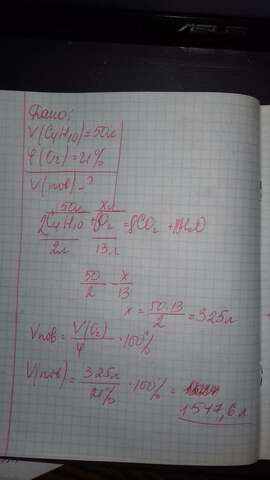 ASUS
Дано:
V(C4H10)=50л
φ(O2)=21%
V(пов)-?
50л xл
2C4H10+O2=8CO2+10H2O
2л 13л
50/2 - x/13
x = 50·13/2 = 325л
Vпов = V(O2)/φ · 100%
V(пов) = 325л/21% · 100% =
1547,6 л